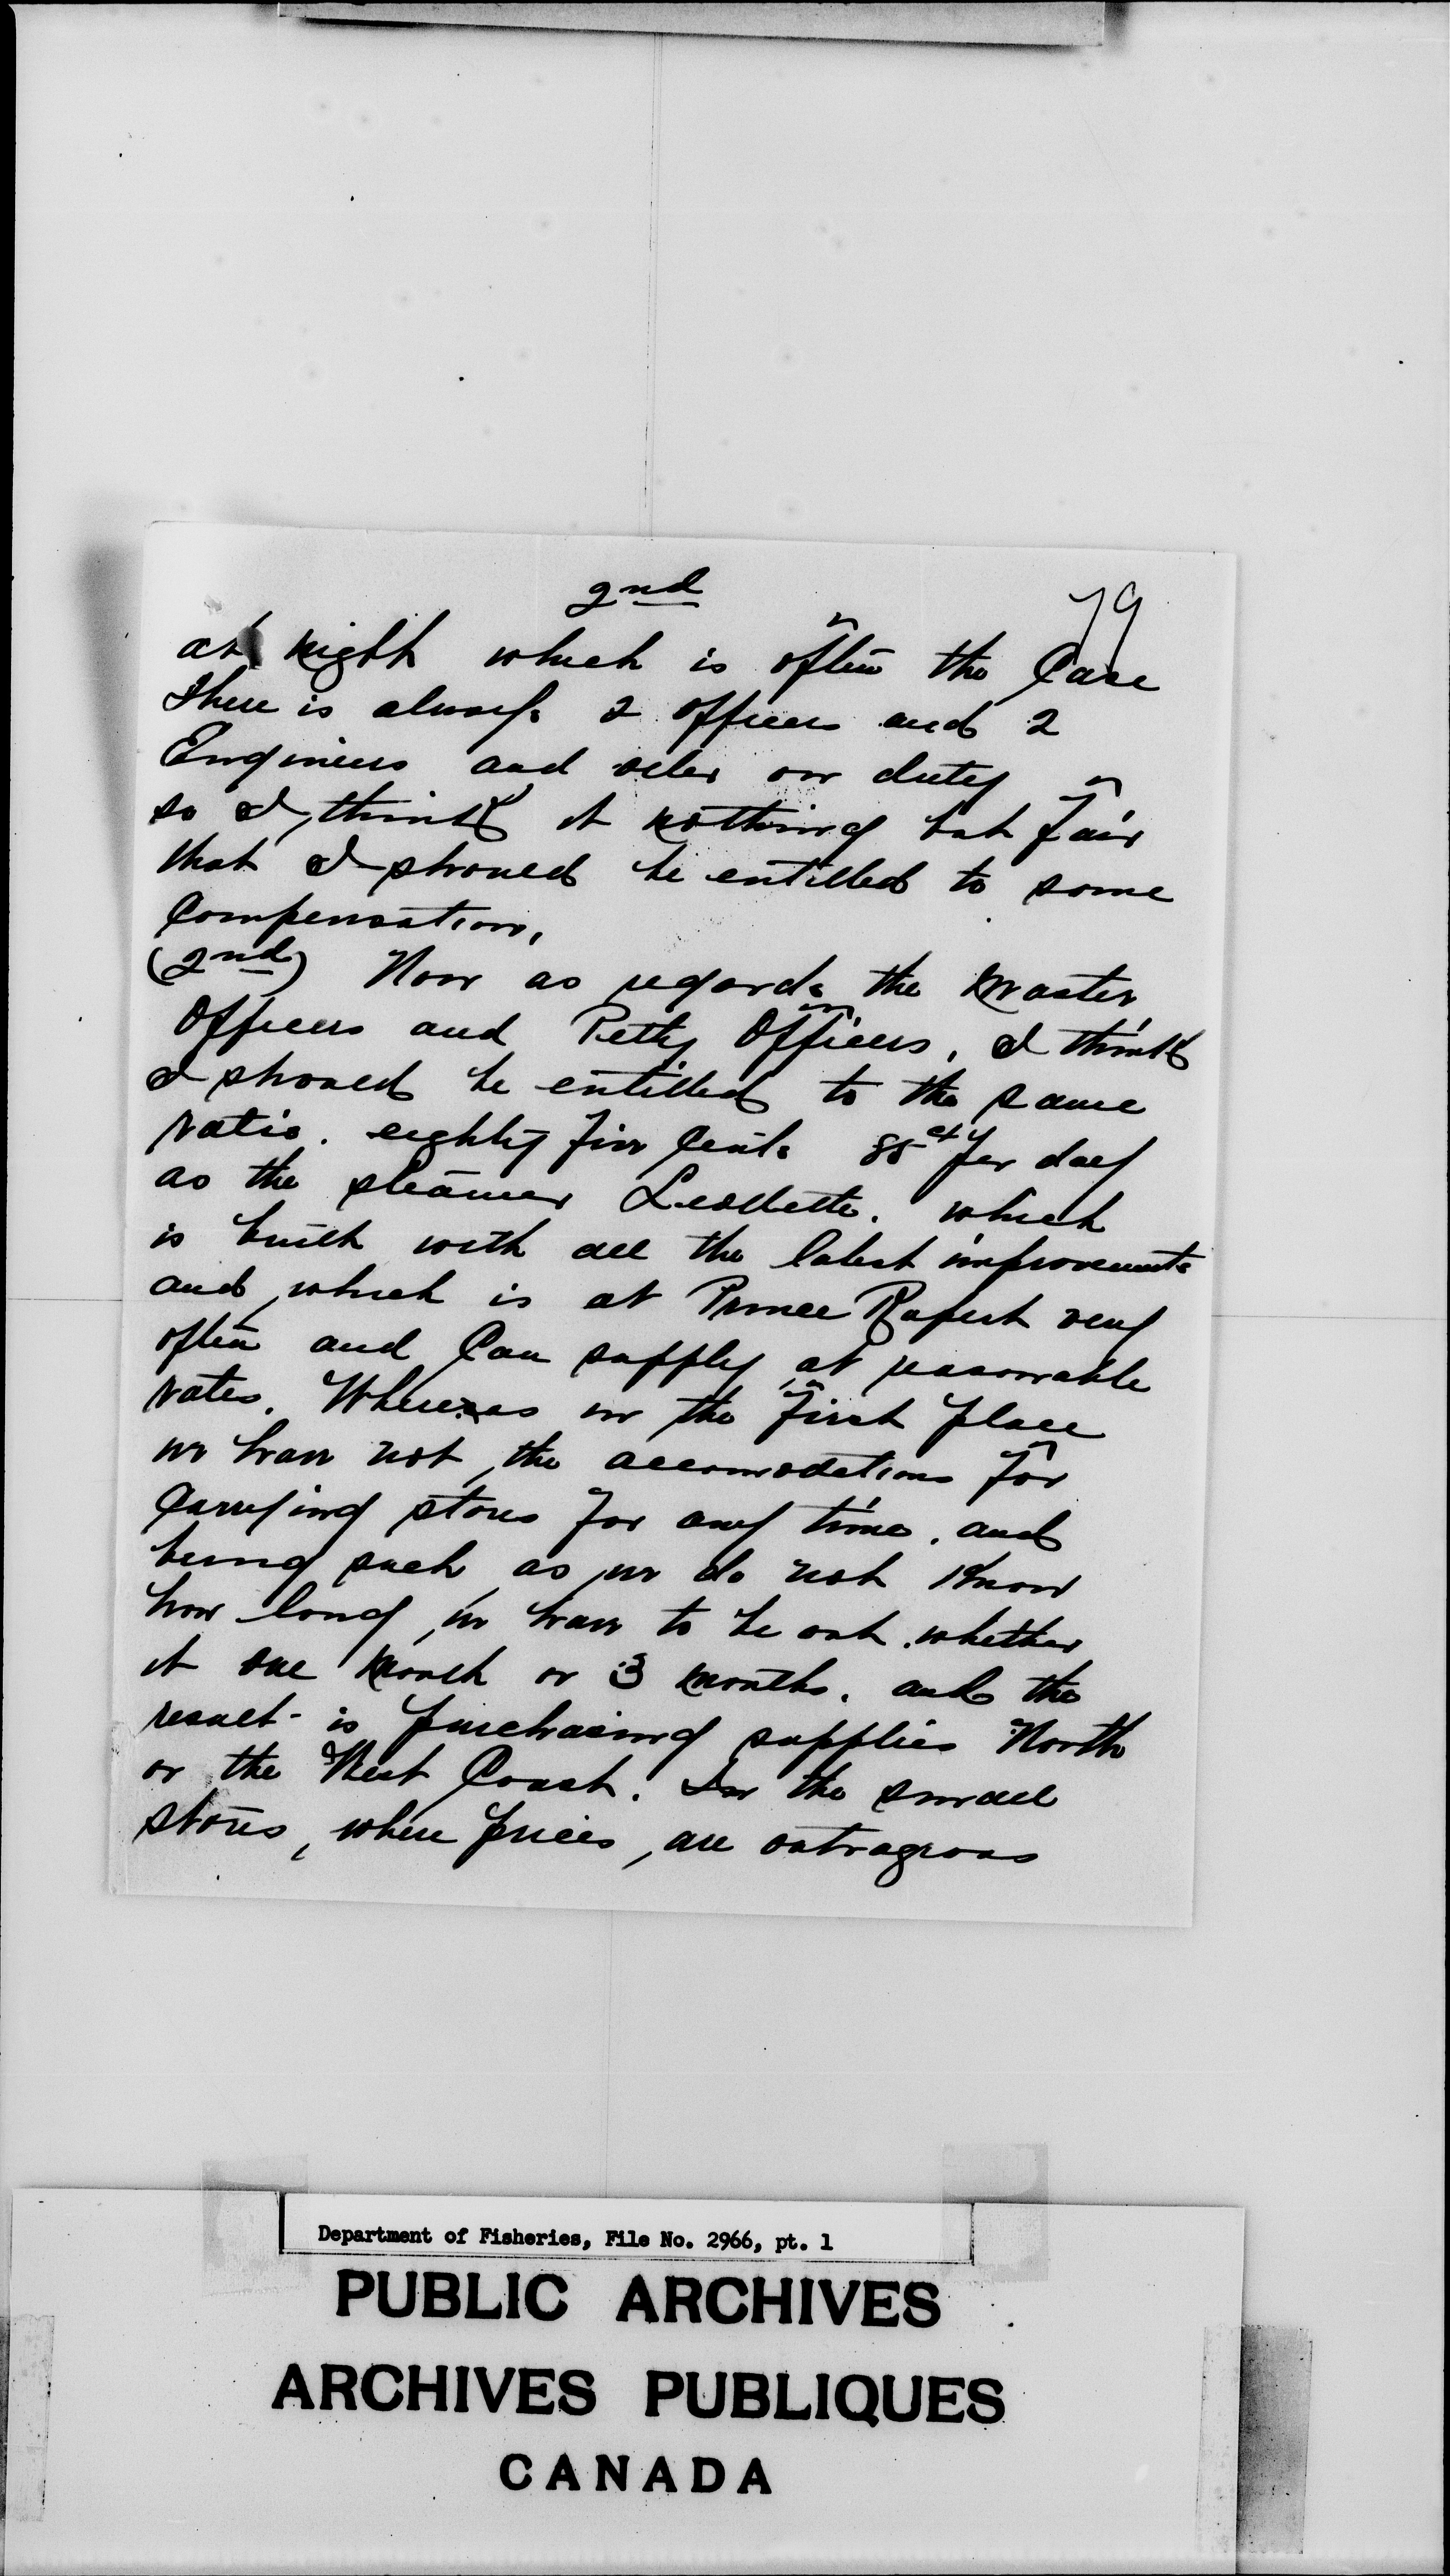 2nd
79
at night which is often the Case
There is always 2 officers and 2
Engineers and oiler on duty
so I, think it nothing but fair
that I should be entitled to some
Compensation,
(2nd) Now as regards the Master
Officers and Petty Officers, I think
I should be entitled to the same
ratio. eighty five Cents 85 cts per day
as the steamer which
is built with all the latest improvements
and, which is at Prince Rupert very
often and Can supply at reasonable
rates. Whereas in the first place
we have not, the accomodations for
Carrying stores for any time. and
being such as we do not know
how long we have to be out. whether
it one month or 3 months. and the
result - is purchasing supplies North
or the West Coast. In the small
stores, where prices, are outragious
Department of Fisheries, File No. 2966, pt. 1
PUBLIC ARCHIVES
ARCHIVES PUBLIQUES
CANADA